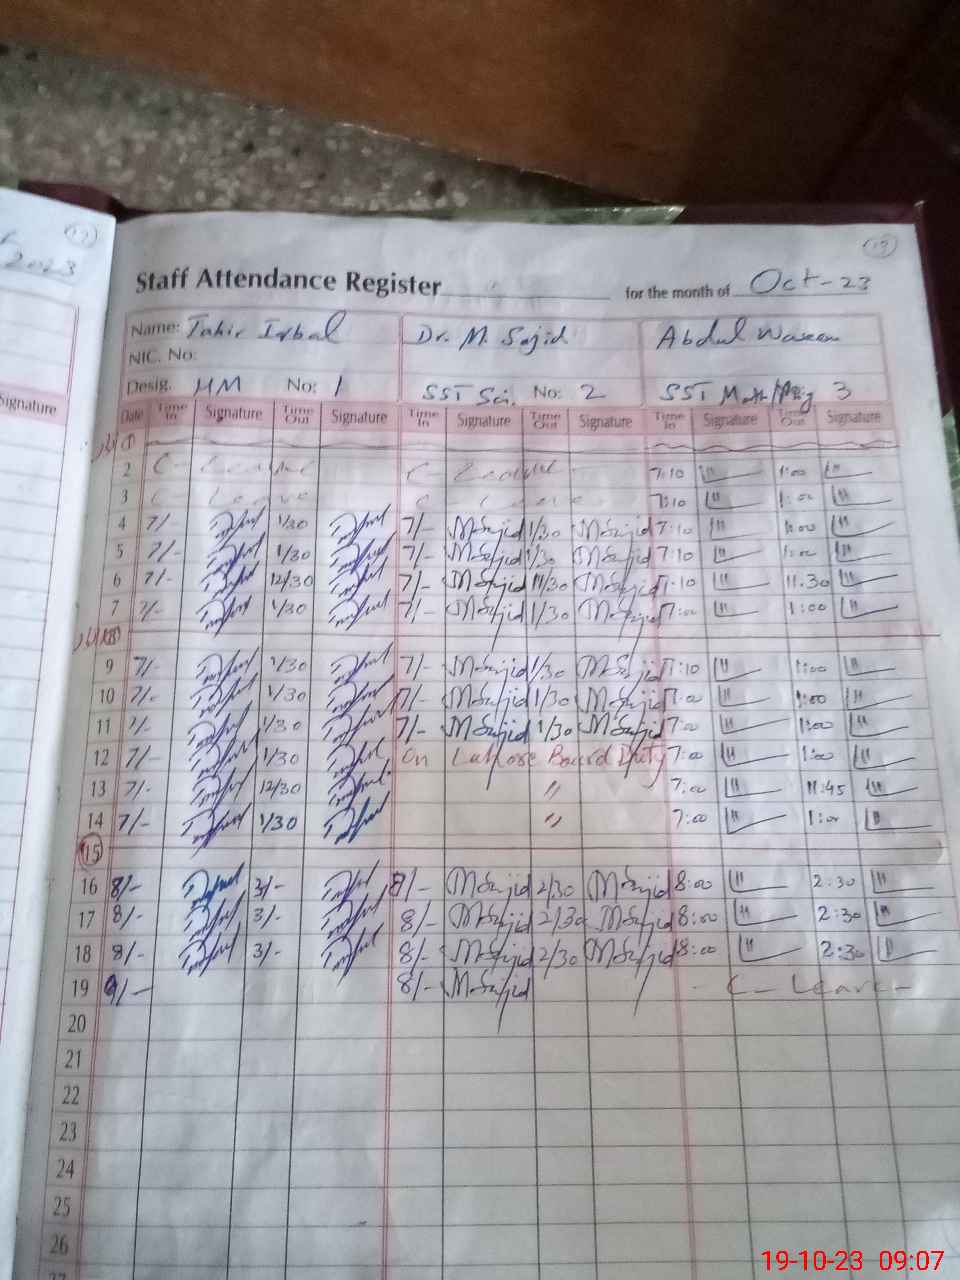 17
2023
17
Staff Attendance Register for the month of Oct-23
Name: Tahir Iqbal Dr. M. Sajid Abdul Waseem
NIC. No:
Desig. HM No: 1 SST Sci. No: 2 SST Math/ 3
Signature
Date Time In Signature Time Out Signature Time In Signature Time Out Signature Time In Signature Time Out Signature
1
2 C - Leave C - Leave 7:10 1:00
3 C - Leave C - Leave 7:10 1:00
4 7/- 1/30 7/- M Sajid 1/30 M Sajid 7:10 1:00
5 7/- 1/30 7/- M Sajid 1/30 M Sajid 7:10 1:00
6 7/- 12/30 7/- M Sajid 11/30 M Sajid 7:10 11.30
7 7/- 1/30 7/- M Sajid 1/30 M Sajid 7:00 1:00
8
9 7/- 1/30 7/- M Sajid 1/30 M Sajid 7:10 1:00
10 7/- 1/30 7/- M Sajid 1/30 M Sajid 7:00 1:00
11 7/- 1/30 7/- M Sajid 1/30 M Sajid 7:00 1:00
12 7/- 1/30 On Lahore Board Duty 7:00 1:00
13 7/- 12/30 " 7:00 11:45
14 7/- 1/30 " 7:00 1:00
15
16 8/- 3/- 8/- M Sajid 2/30 M Sajid 8:00 2:30
17 8/- 3/- 8/- M Sajid 2/30 M Sajid 8:00 2:30
18 8/- 3/- 8/- M Sajid 2/30 M Sajid 8:00 2:30
19 9/- 8/- M Sajid - C - Leave -
20
21
22
23
24
25
26
27
19-10-23 09:07